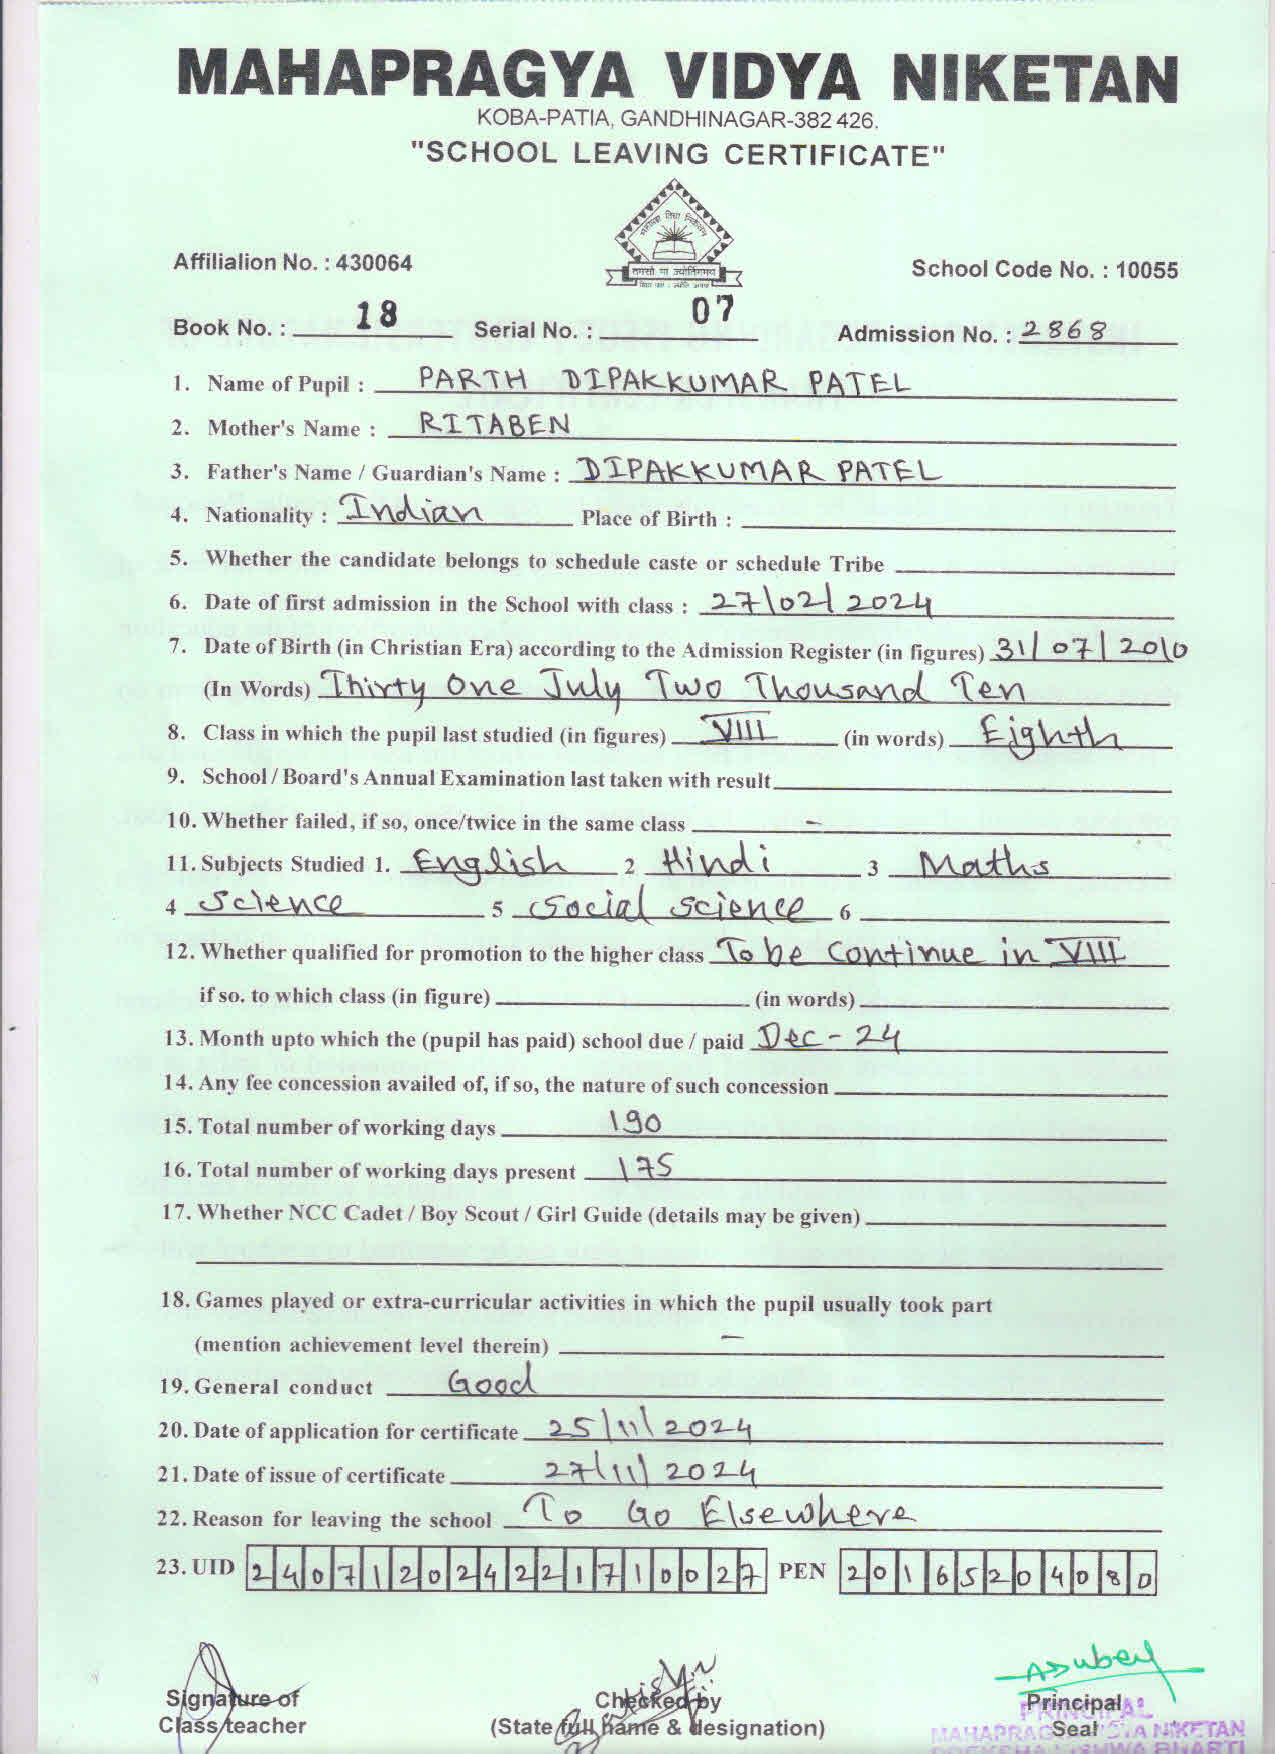 MAHAPRAGYA VIDYA NIKETAN
KOBA-PATIA, GANDHINAGAR-382 426.
"SCHOOL LEAVING CERTIFICATE"
महाप्रज्ञ विद्या निकेतन
तमसो मा ज्योतिर्गमय
Affilialion No. : 430064
School Code No. : 10055
Book No. : 18 Serial No. : 07 Admission No. : 2868
1. Name of Pupil : PARTH DIPAKKUMAR PATEL
2. Mother's Name : RITABEN
3. Father's Name / Guardian's Name : DIPAKKUMAR PATEL
4. Nationality : Indian Place of Birth :
5. Whether the candidate belongs to schedule caste or schedule Tribe
6. Date of first admission in the School with class : 27/02/2024
7. Date of Birth (in Christian Era) according to the Admission Register (in figures) 31/07/2010
(In Words) Thirty One July Two Thousand Ten
8. Class in which the pupil last studied (in figures) VIII (in words) Eighth
9. School / Board's Annual Examination last taken with result
10. Whether failed, if so, once/twice in the same class -
11. Subjects Studied 1. English 2 Hindi 3 Maths
4 Science 5 Social science 6
12. Whether qualified for promotion to the higher class To be Continue in VIII
if so. to which class (in figure) (in words)
13. Month upto which the (pupil has paid) school due / paid Dec - 24
14. Any fee concession availed of, if so, the nature of such concession
15. Total number of working days 190
16. Total number of working days present 175
17. Whether NCC Cadet / Boy Scout / Girl Guide (details may be given)
18. Games played or extra-curricular activities in which the pupil usually took part
(mention achievement level therein) -
19. General conduct Good
20. Date of application for certificate 25/11/2024
21. Date of issue of certificate 27/11/2024
22. Reason for leaving the school To Go Elsewhere
23. UID 240712024221710027 PEN 20165204080
ADubey
Signature of
Class teacher
Checked by
(State full name & designation)
Principal
Seal
PRINCIPAL
MAHAPRAGYA VIDYA NIKETAN
PREKSHA VISHWA BHARTI